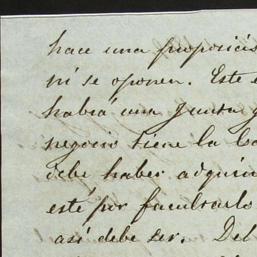 hace una proposició
ni se oponen. Este
habrá una Junta
negocio tiene la
debe haber adquiri
esté por facultarlo
así debe ser. Del